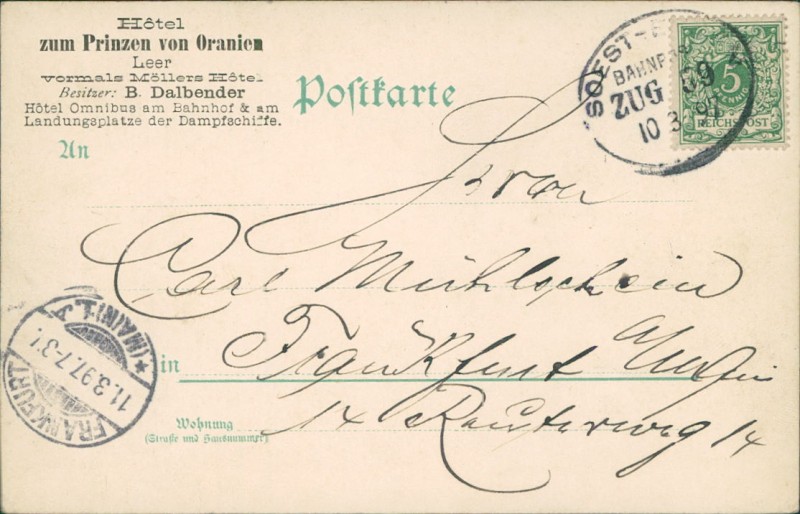 Hôtel
zum Prinzen von Oranien
Leer
vormals Möllers Hôtel
Besitzer: B. Dalbender
Hôtel Omnibus am Bahnhof & am
Landungsplatze der Dampfschiffe.
Postkarte
SOEST
BAHNPOST
ZUG 39
10 3 97
5
REICHSPOST
An
Herrn
Carl Mühlschein
in
Frankfurt a/Main
14 Reuterweg 14
Wohnung
(Straße und Hausnummer)
FRANKFURT
11.3.97.7-
*(MAIN)1.